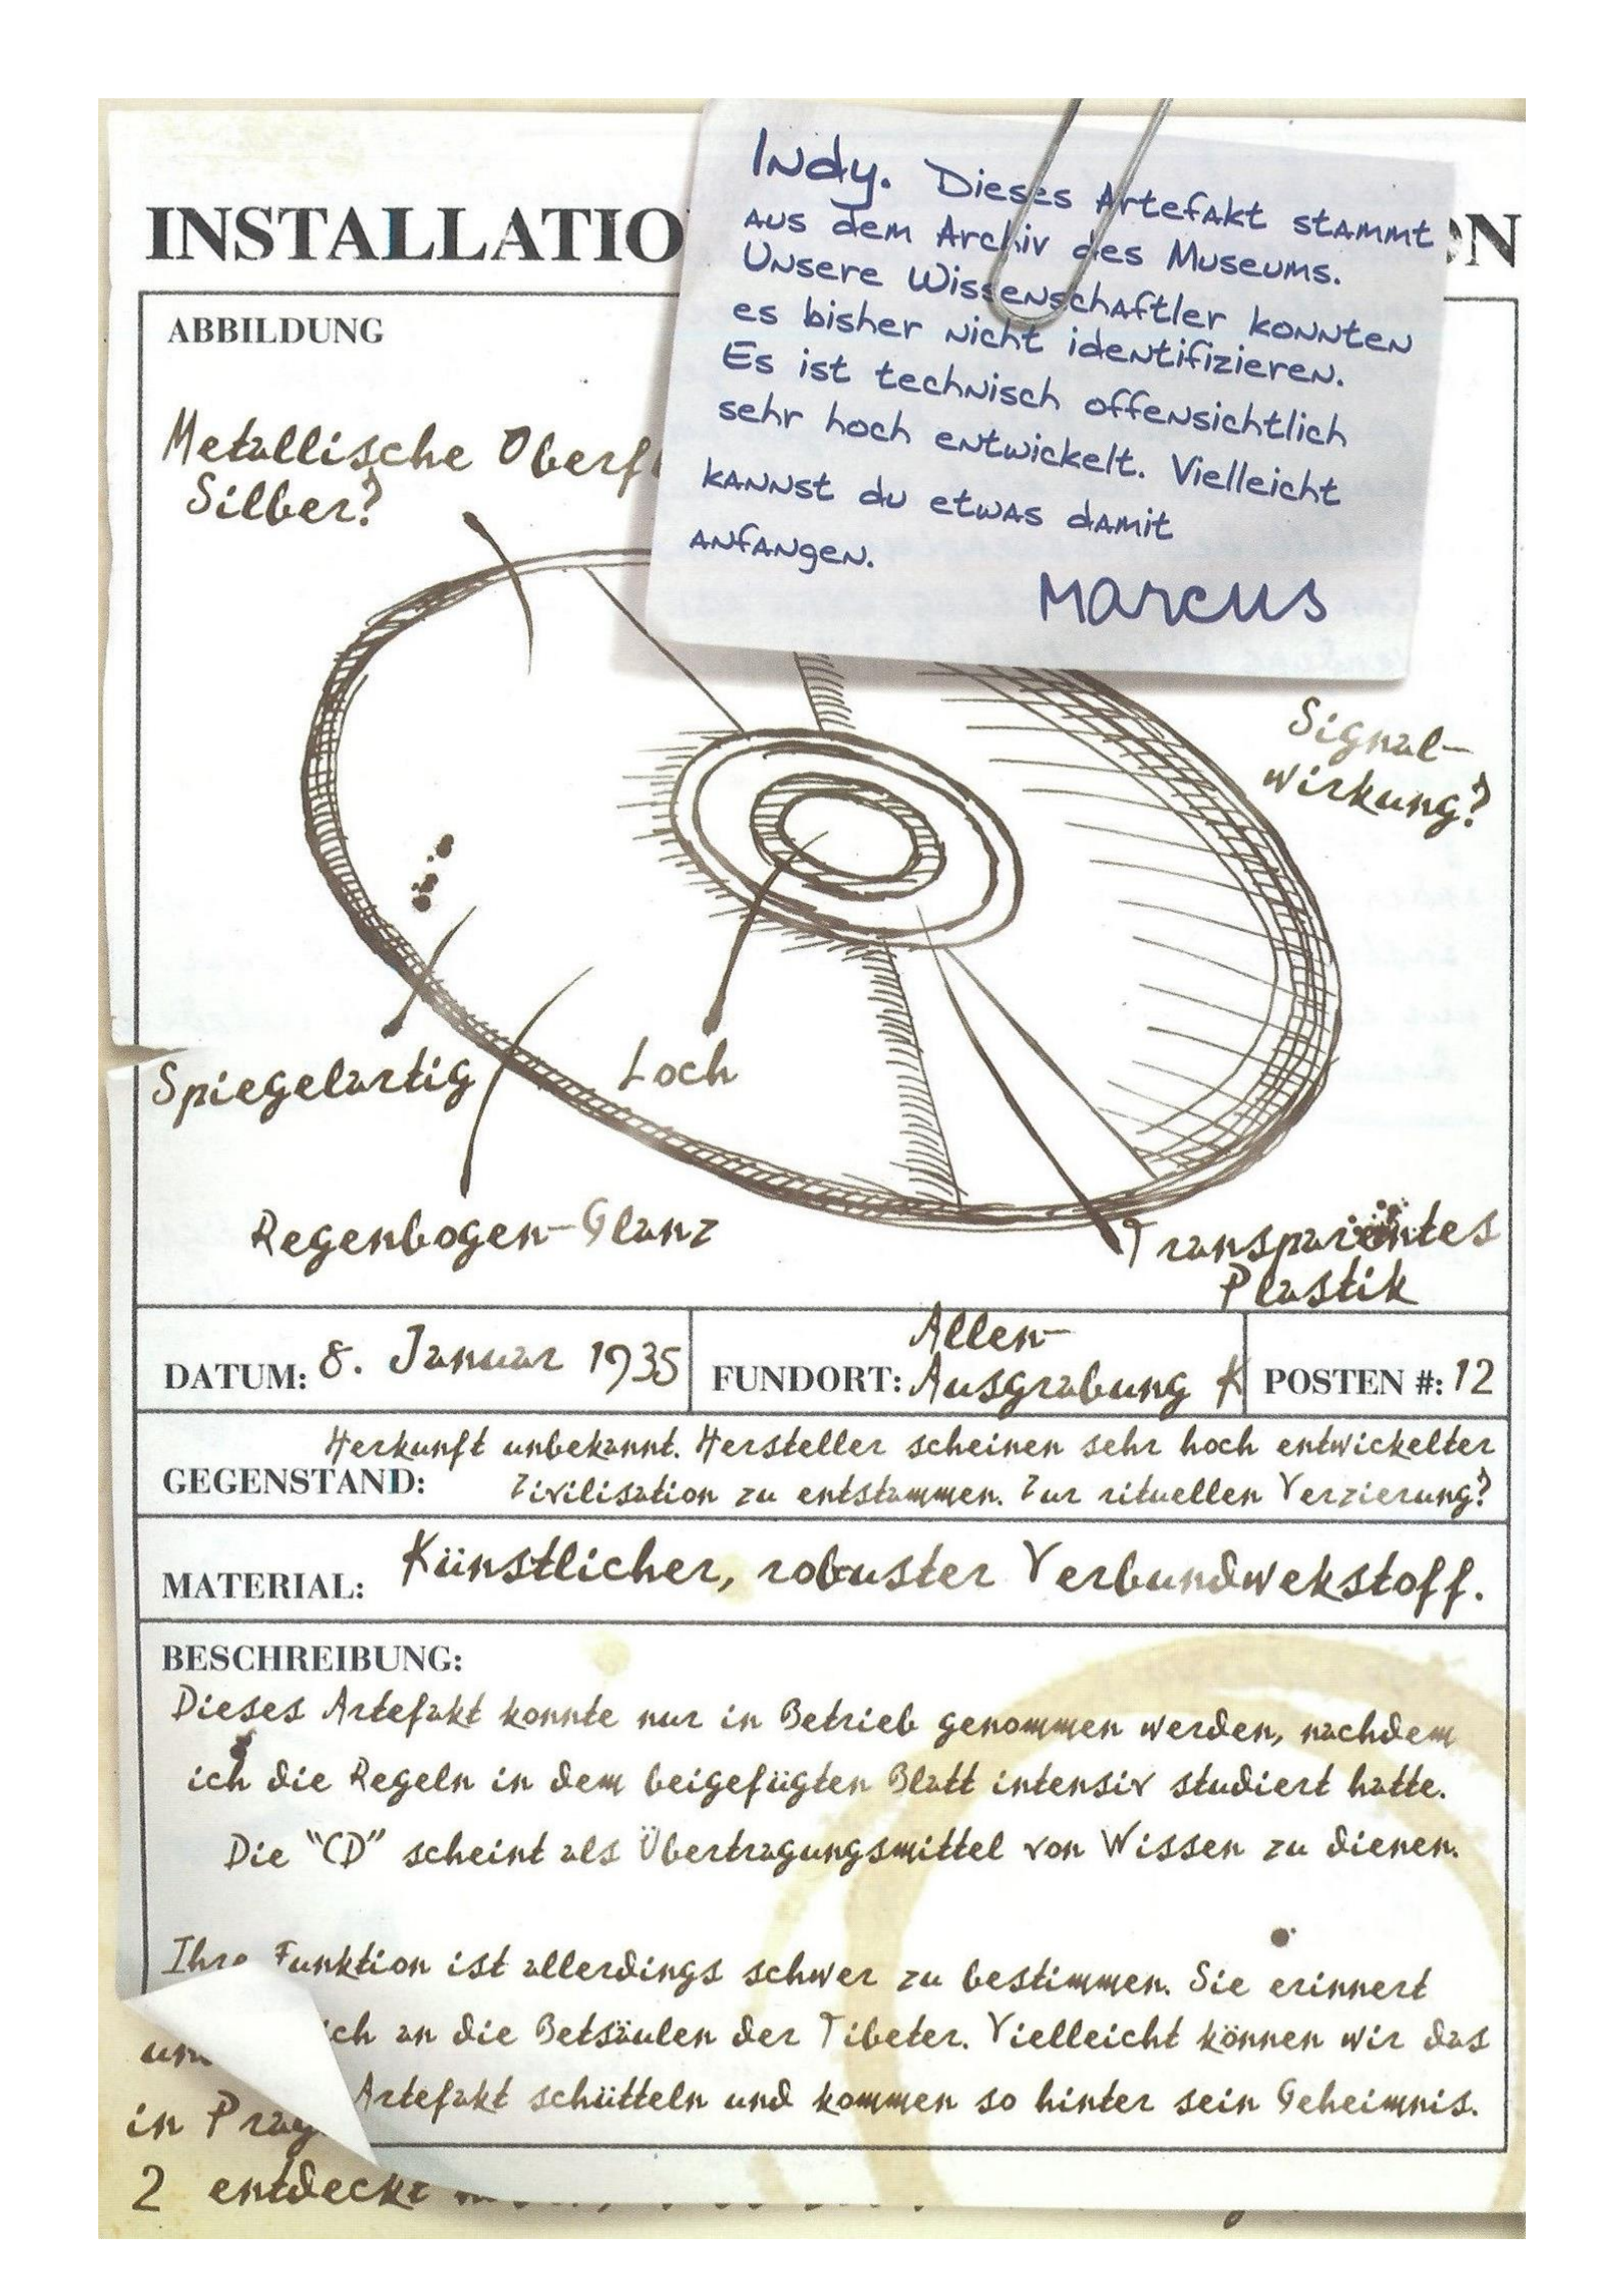 Indy. Dieses Artefakt stammt
aus dem Archiv des Museums.
Unsere Wissenschaftler konnten
es bisher nicht identifizieren.
Es ist technisch offensichtlich
sehr hoch entwickelt. Vielleicht
kannst du etwas damit
anfangen.
Marcus
INSTALLATIO ON
ABBILDUNG
Metallische Oberf
Silber?
Signal-
wirkung?
Spiegelartig
Loch
Regenbogen-Glanz
Transparentes
Plastik
DATUM: 8. Januar 1935
FUNDORT: Allen-
Ausgrabung K
POSTEN #: 12
GEGENSTAND: Herkunft unbekannt. Hersteller scheinen sehr hoch entwickelter
Zivilisation zu entstammen. Zur rituellen Verzierung?
MATERIAL: Künstlicher, robuster Verbundwekstoff.
BESCHREIBUNG:
Dieses Artefakt konnte nur in Betrieb genommen werden, nachdem
ich die Regeln in dem beigefügten Blatt intensiv studiert hatte.
Die "CD" scheint als Übertragungsmittel von Wissen zu dienen.
Ihre Funktion ist allerdings schwer zu bestimmen. Sie erinnert
ich an die Betsäulen der Tibeter. Vielleicht können wir das
Artefakt schütteln und kommen so hinter sein Geheimnis.
in Prag
2 entdeckt